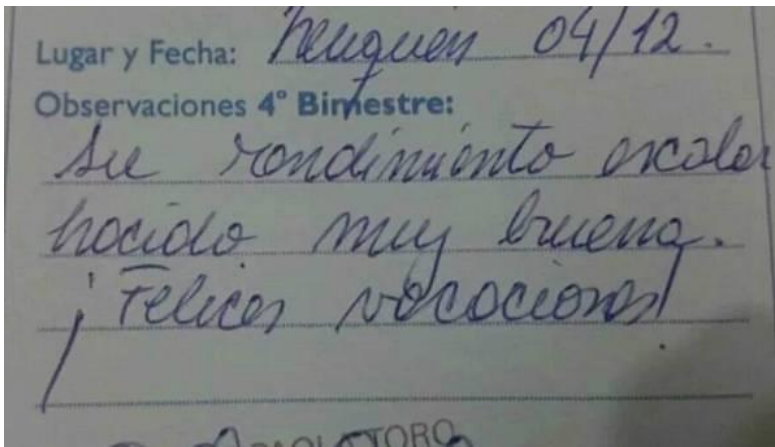 Lugar y Fecha: Neuquén 04/12.
Observaciones 4° Bimestre:
Su rendimiento escolar
hacido muy buena.
¡Felices vacaciones!
TORO